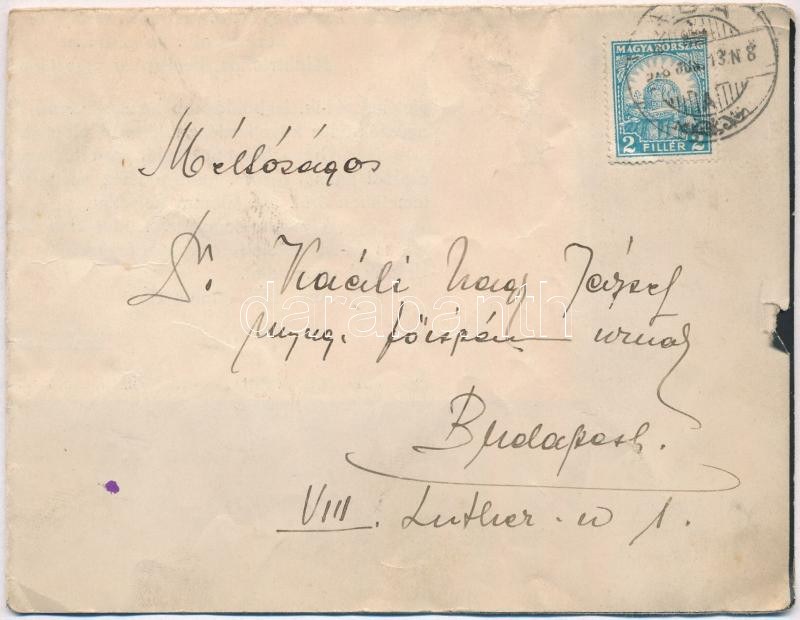 MAGYARORSZÁG
13.N 8
2 FILLÉR 2
Méltóságos
Dr. Kaáli Nagy József
nyug. főispán úrnak
darabanth
Budapest.
VIII. Luther-u 1.